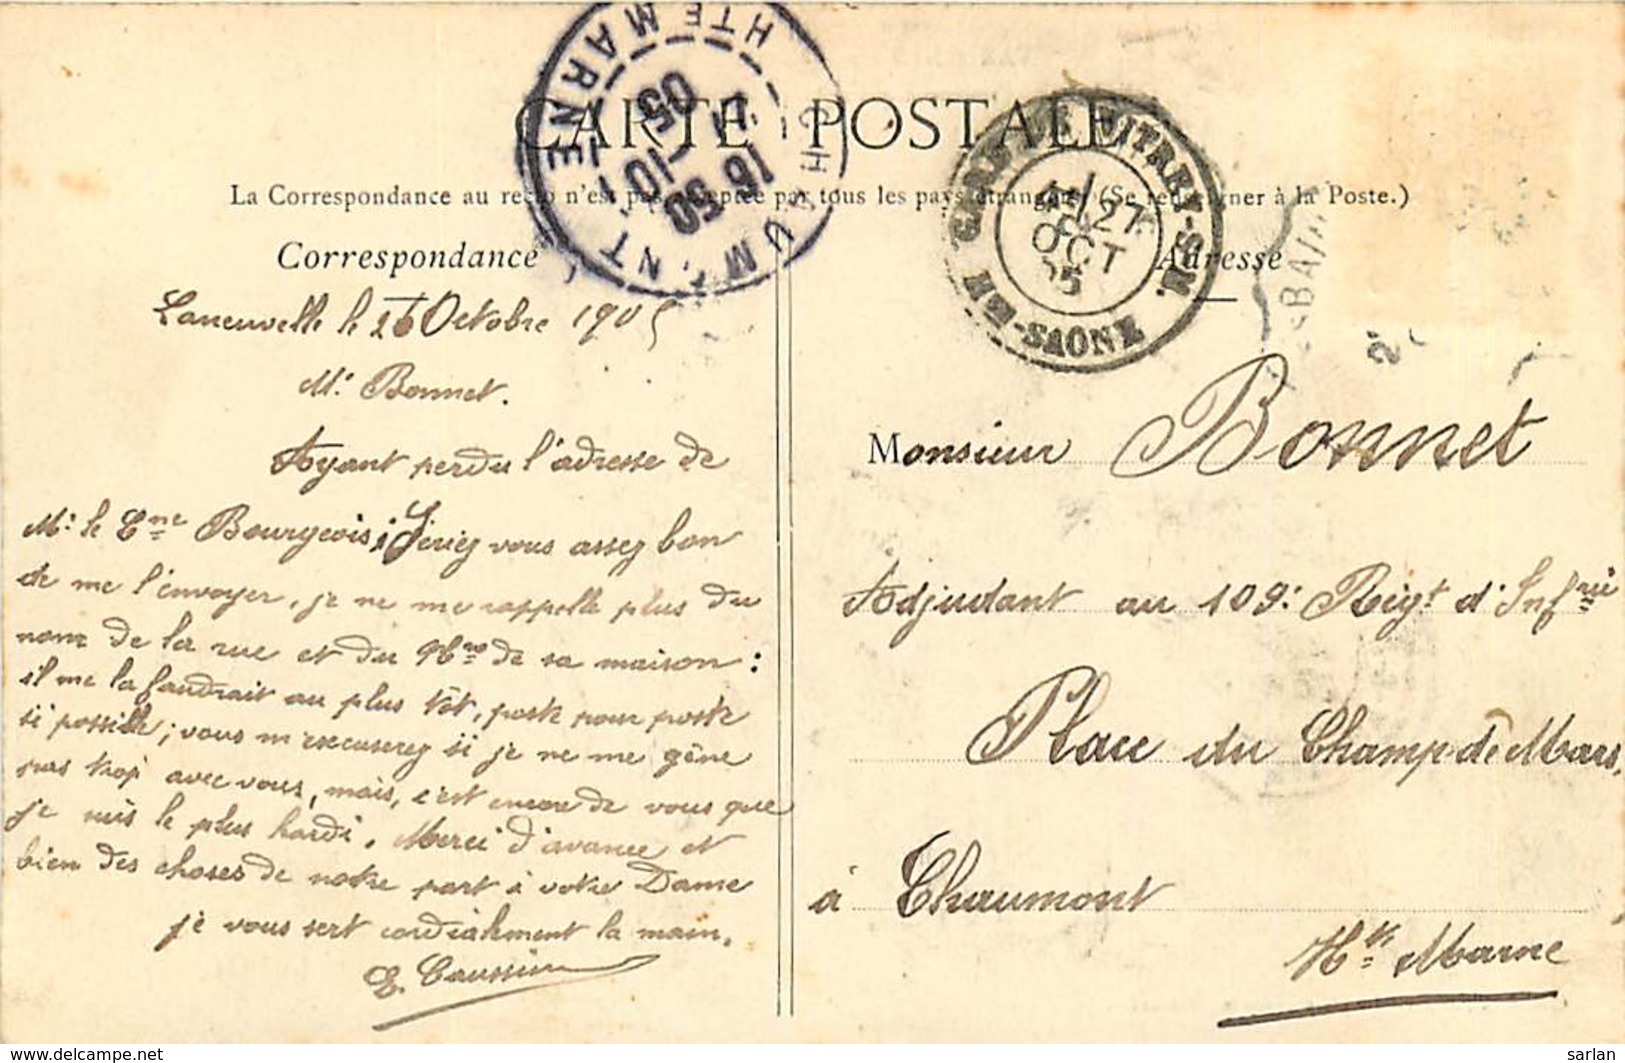 CARTE POSTALE
La Correspondance au recto n'est pas acceptée par tous les pays étrangers (Se renseigner à la Poste.)
Correspondance
Laneuvelle le 26 Octobre 1905
Mr. Bonnet.
Ayant perdu l'adresse de
Mr. le Cne Bourgeois, Seriez vous assez bon
de me l'envoyer, je ne me rappelle plus du
nom de la rue et du No de sa maison :
il me la faudrait au plus tôt, poste pour poste
si possible; vous m'excuserez si je ne me gêne
pas trop avec vous, mais, c'est encore de vous que
je suis le plus hardi. Merci d'avance et
bien des choses de notre part à votre Dame
je vous sert cordialement la main.
E. Caussin
CHAUMONT
HTE MARNE
16 50
27 -10
05
GARE DE VITREY-S-M.
27
OCT
05
HTE-SAONE
Adresse
Monsieur Bonnet
Adjudant au 109: Regt d'Infrie
Place du Champ de Mars,
à Chaumont
Hte Marne
delcampe.net
sarlan